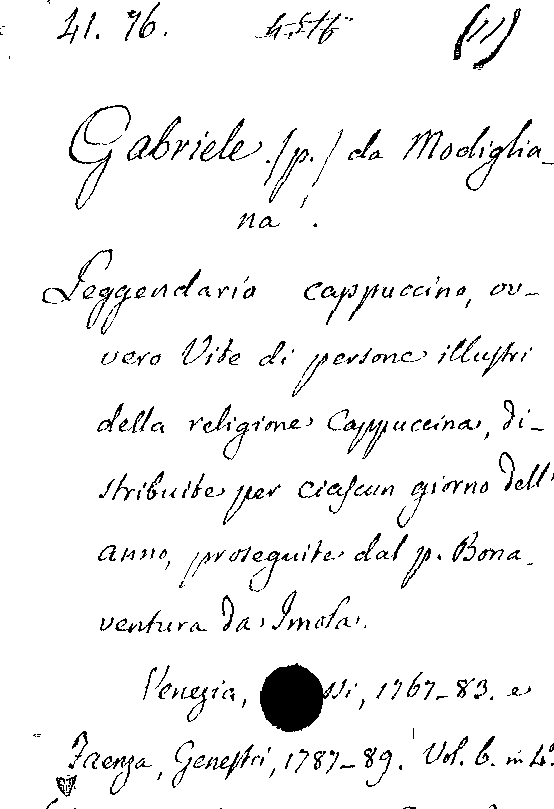 41. 76. 4516 (11)
Gabriele (p.) da Modiglia-
na.
Leggendario cappuccino, ov-
vero Vite di persone illustri
della religione Cappuccina, di-
stribuite per ciascun giorno dell'
anno, proseguite dal p. Bona-
ventura da Imola.
Venezia, ssi, 1767-83. e
Faenza, Genestri, 1787-89. Vol. 6. in 4°.